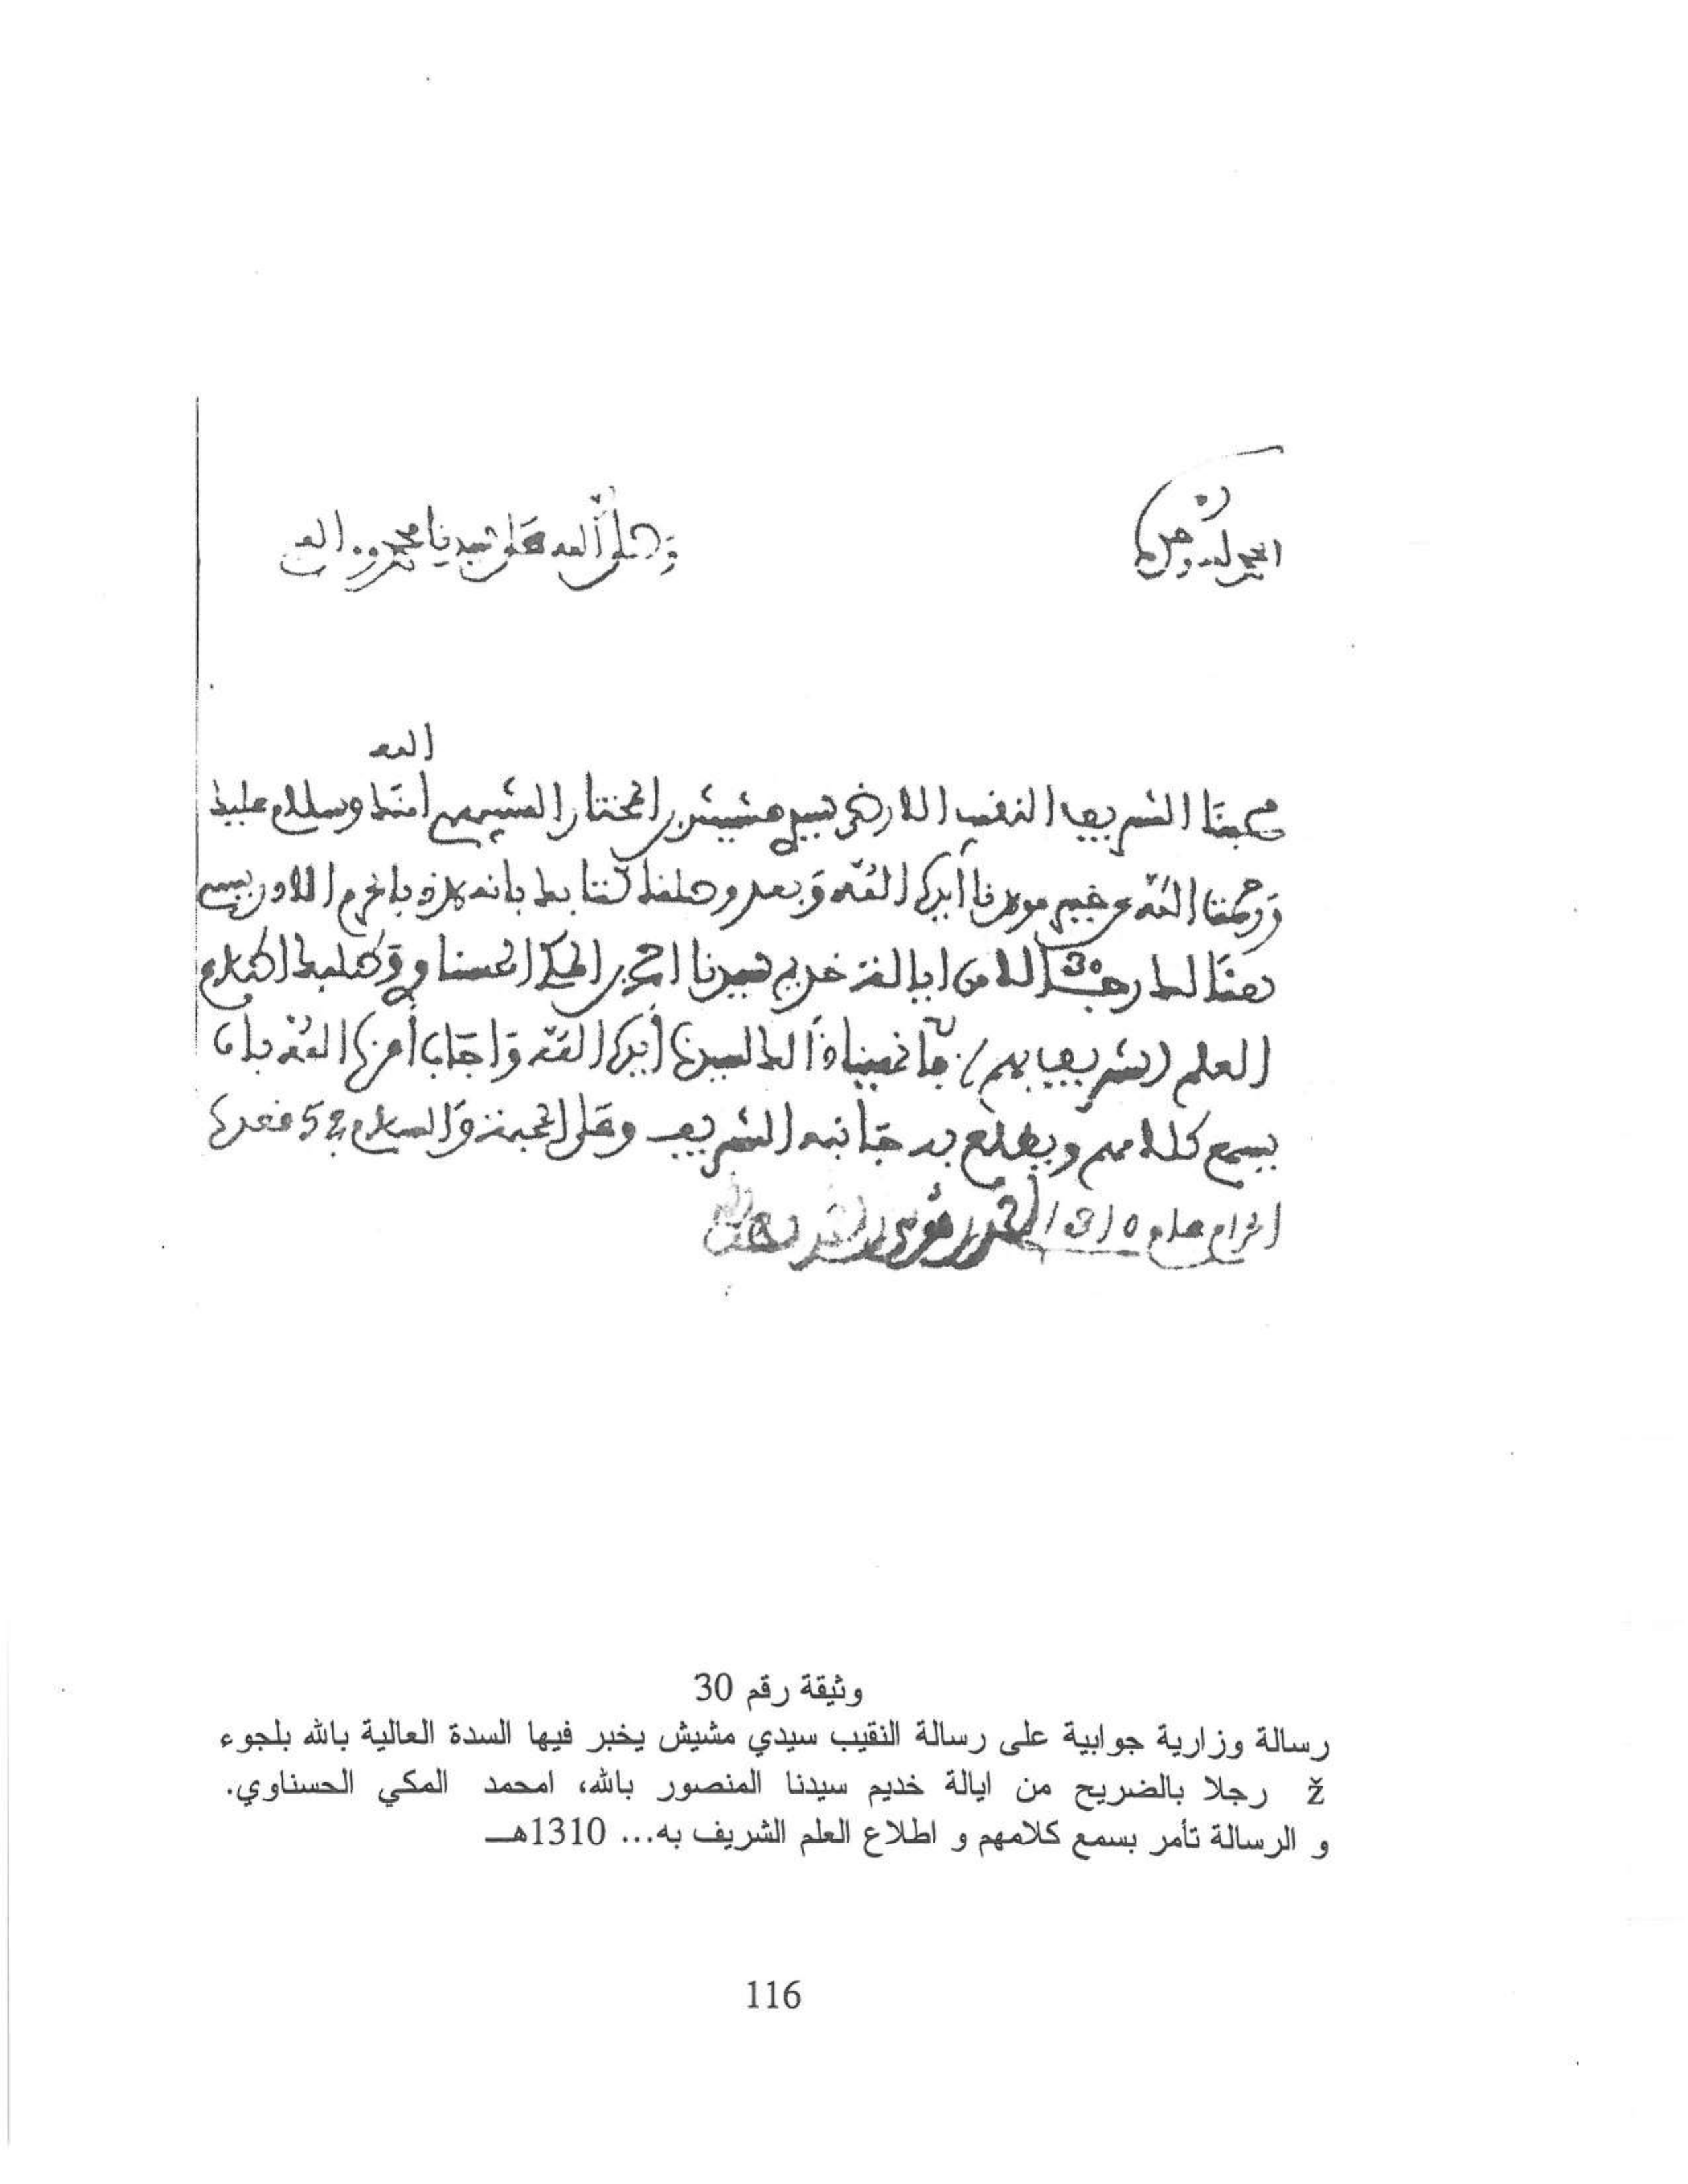 الحمد لله وحده
وصلى الله على سيدنا محمد وءاله
الله
محبنا الشريف النقيب الارضى سيدي مشيش بن المختار الشبيهي امنك وسلام عليك
ورحمت الله عن خير مولانا أيده الله وبعد وصلنا كتابك بانه بالحرم الادريسي
رجلا من ايالة خديم سيدنا امحمد بن المكي الحسناوي وطلبك اطلاع
العلم الشريف بهم فأنهيناه لسيدنا أيده الله وأجاب أعزه الله بأن
يسمع كلامهم ويطلع به جانبه الشريف وعلى المحبة والسلام في 25 قعدة
الحرام عام 1310
وثيقة رقم 30
رسالة وزارية جوابية على رسالة النقيب سيدي مشيش يخبر فيها السدة العالية بالله بلجوء
ž رجلا بالضريح من ايالة خديم سيدنا المنصور بالله، امحمد المكي الحسناوي.
و الرسالة تأمر بسمع كلامهم و اطلاع العلم الشريف به... 1310هـ
116